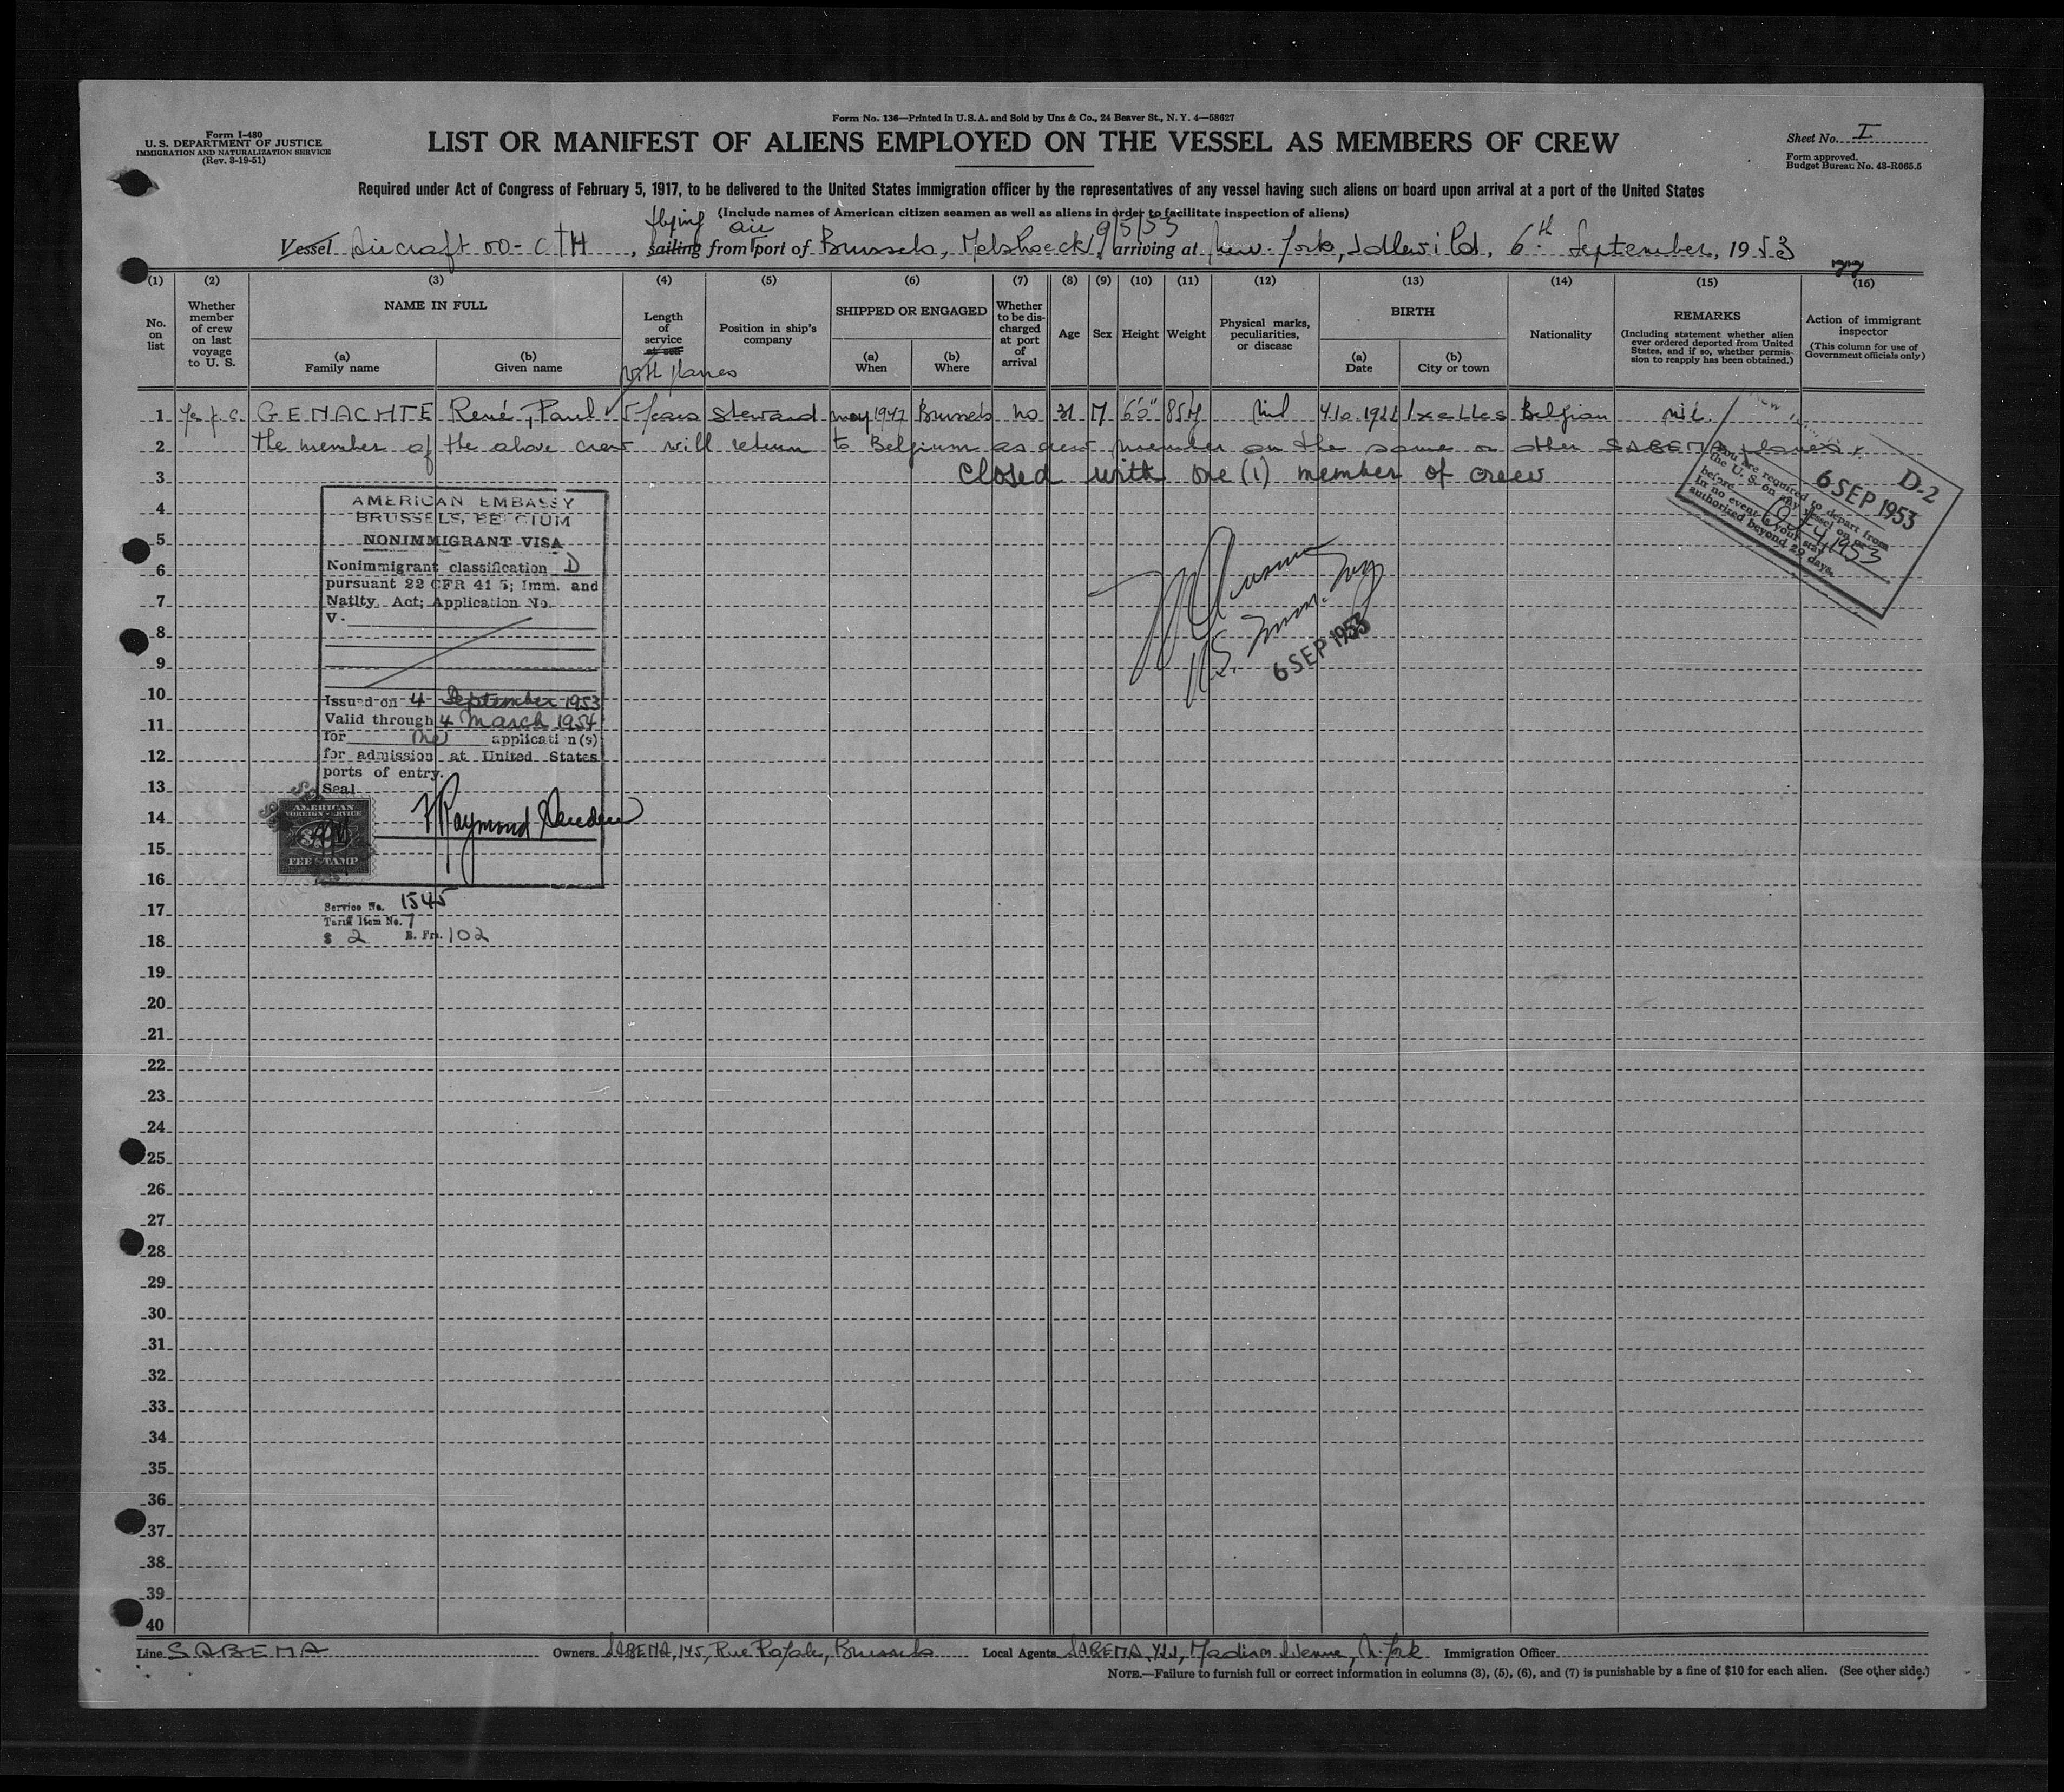 Form No. 136—Printed in U.S.A. and Sold by Unz & Co., 24 Beaver St., N. Y. 4—58627
Form I-480
U. S. DEPARTMENT OF JUSTICE
IMMIGRATION AND NATURALIZATION SERVICE
(Rev. 3-19-51)
LIST OR MANIFEST OF ALIENS EMPLOYED ON THE VESSEL AS MEMBERS OF CREW
Sheet No. I
Form approved.
Budget Bureau No. 43-R065.5
Required under Act of Congress of February 5, 1917, to be delivered to the United States immigration officer by the representatives of any vessel having such aliens on board upon arrival at a port of the United States
(Include names of American citizen seamen as well as aliens in order to facilitate inspection of aliens)
flying air 9/5/53
Vessel Aircraft OO-CTH, sailing from port of Brussels, Melsbroeck, arriving at New-York, Idlewild, 6th September, 1953
(1) (2) (3) (4) (5) (6) (7) (8) (9) (10) (11) (12) (13) (14) (15) (16)
No. on list
Whether member of crew on last voyage to U. S.
NAME IN FULL
(a) Family name
(b) Given name
Length of service at sea
with planes
Position in ship's company
SHIPPED OR ENGAGED
(a) When
(b) Where
Whether to be discharged at port of arrival
Age
Sex
Height
Weight
Physical marks, peculiarities, or disease
BIRTH
(a) Date
(b) City or town
Nationality
REMARKS
(Including statement whether alien ever ordered deported from United States, and if so, whether permission to reapply has been obtained.)
Action of immigrant inspector
(This column for use of Government officials only)
1 GENACHTE René, Paul 5 Years Steward may 1947 Brussels no 31 M 6'0" nil 4.10.1921 Ixelles Belgian nil
2 The member of the above crew will return to Belgium as crew member on the same or other SABENA planes.
3 Closed with one (1) member of crew
4
5
6
7
8
9
10
11
12
13
14
15
16
17
18
19
20
21
22
23
24
25
26
27
28
29
30
31
32
33
34
35
36
37
38
39
40
AMERICAN EMBASSY
BRUSSELS, BELGIUM
NONIMMIGRANT VISA
Nonimmigrant classification D
pursuant 22 CFR 41 5; Imm. and
Natlty. Act; Application No.
V-
Issued on 4 September 1953
Valid through 4 March 1954
for one application(s)
for admission at United States
ports of entry.
Seal
AMERICAN
FOREIGN SERVICE
FEE STAMP
Service No. 1545
Tariff Item No. 7
$ 2 B. Frs. 102
U.S. Imm. Insp
6 SEP 1953
D-2
6 SEP 1953
You are required to depart from
the U. S. on any vessel on or
before
In no event is your stay
authorized beyond 29 days.
Line SABENA Owners SABENA, 145, Rue Royale, Brussels Local Agents SABENA, 422, Madison Avenue, N. York Immigration Officer
NOTE.—Failure to furnish full or correct information in columns (3), (5), (6), and (7) is punishable by a fine of $10 for each alien. (See other side.)